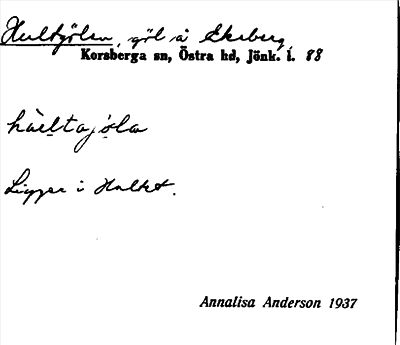 Hultgölen, göl å Ekeberg,
Korsberga sn, Östra hd, Jönk. l. 88
hu̇ltajöla
Ligger i Hultet.
Annalisa Anderson 1937